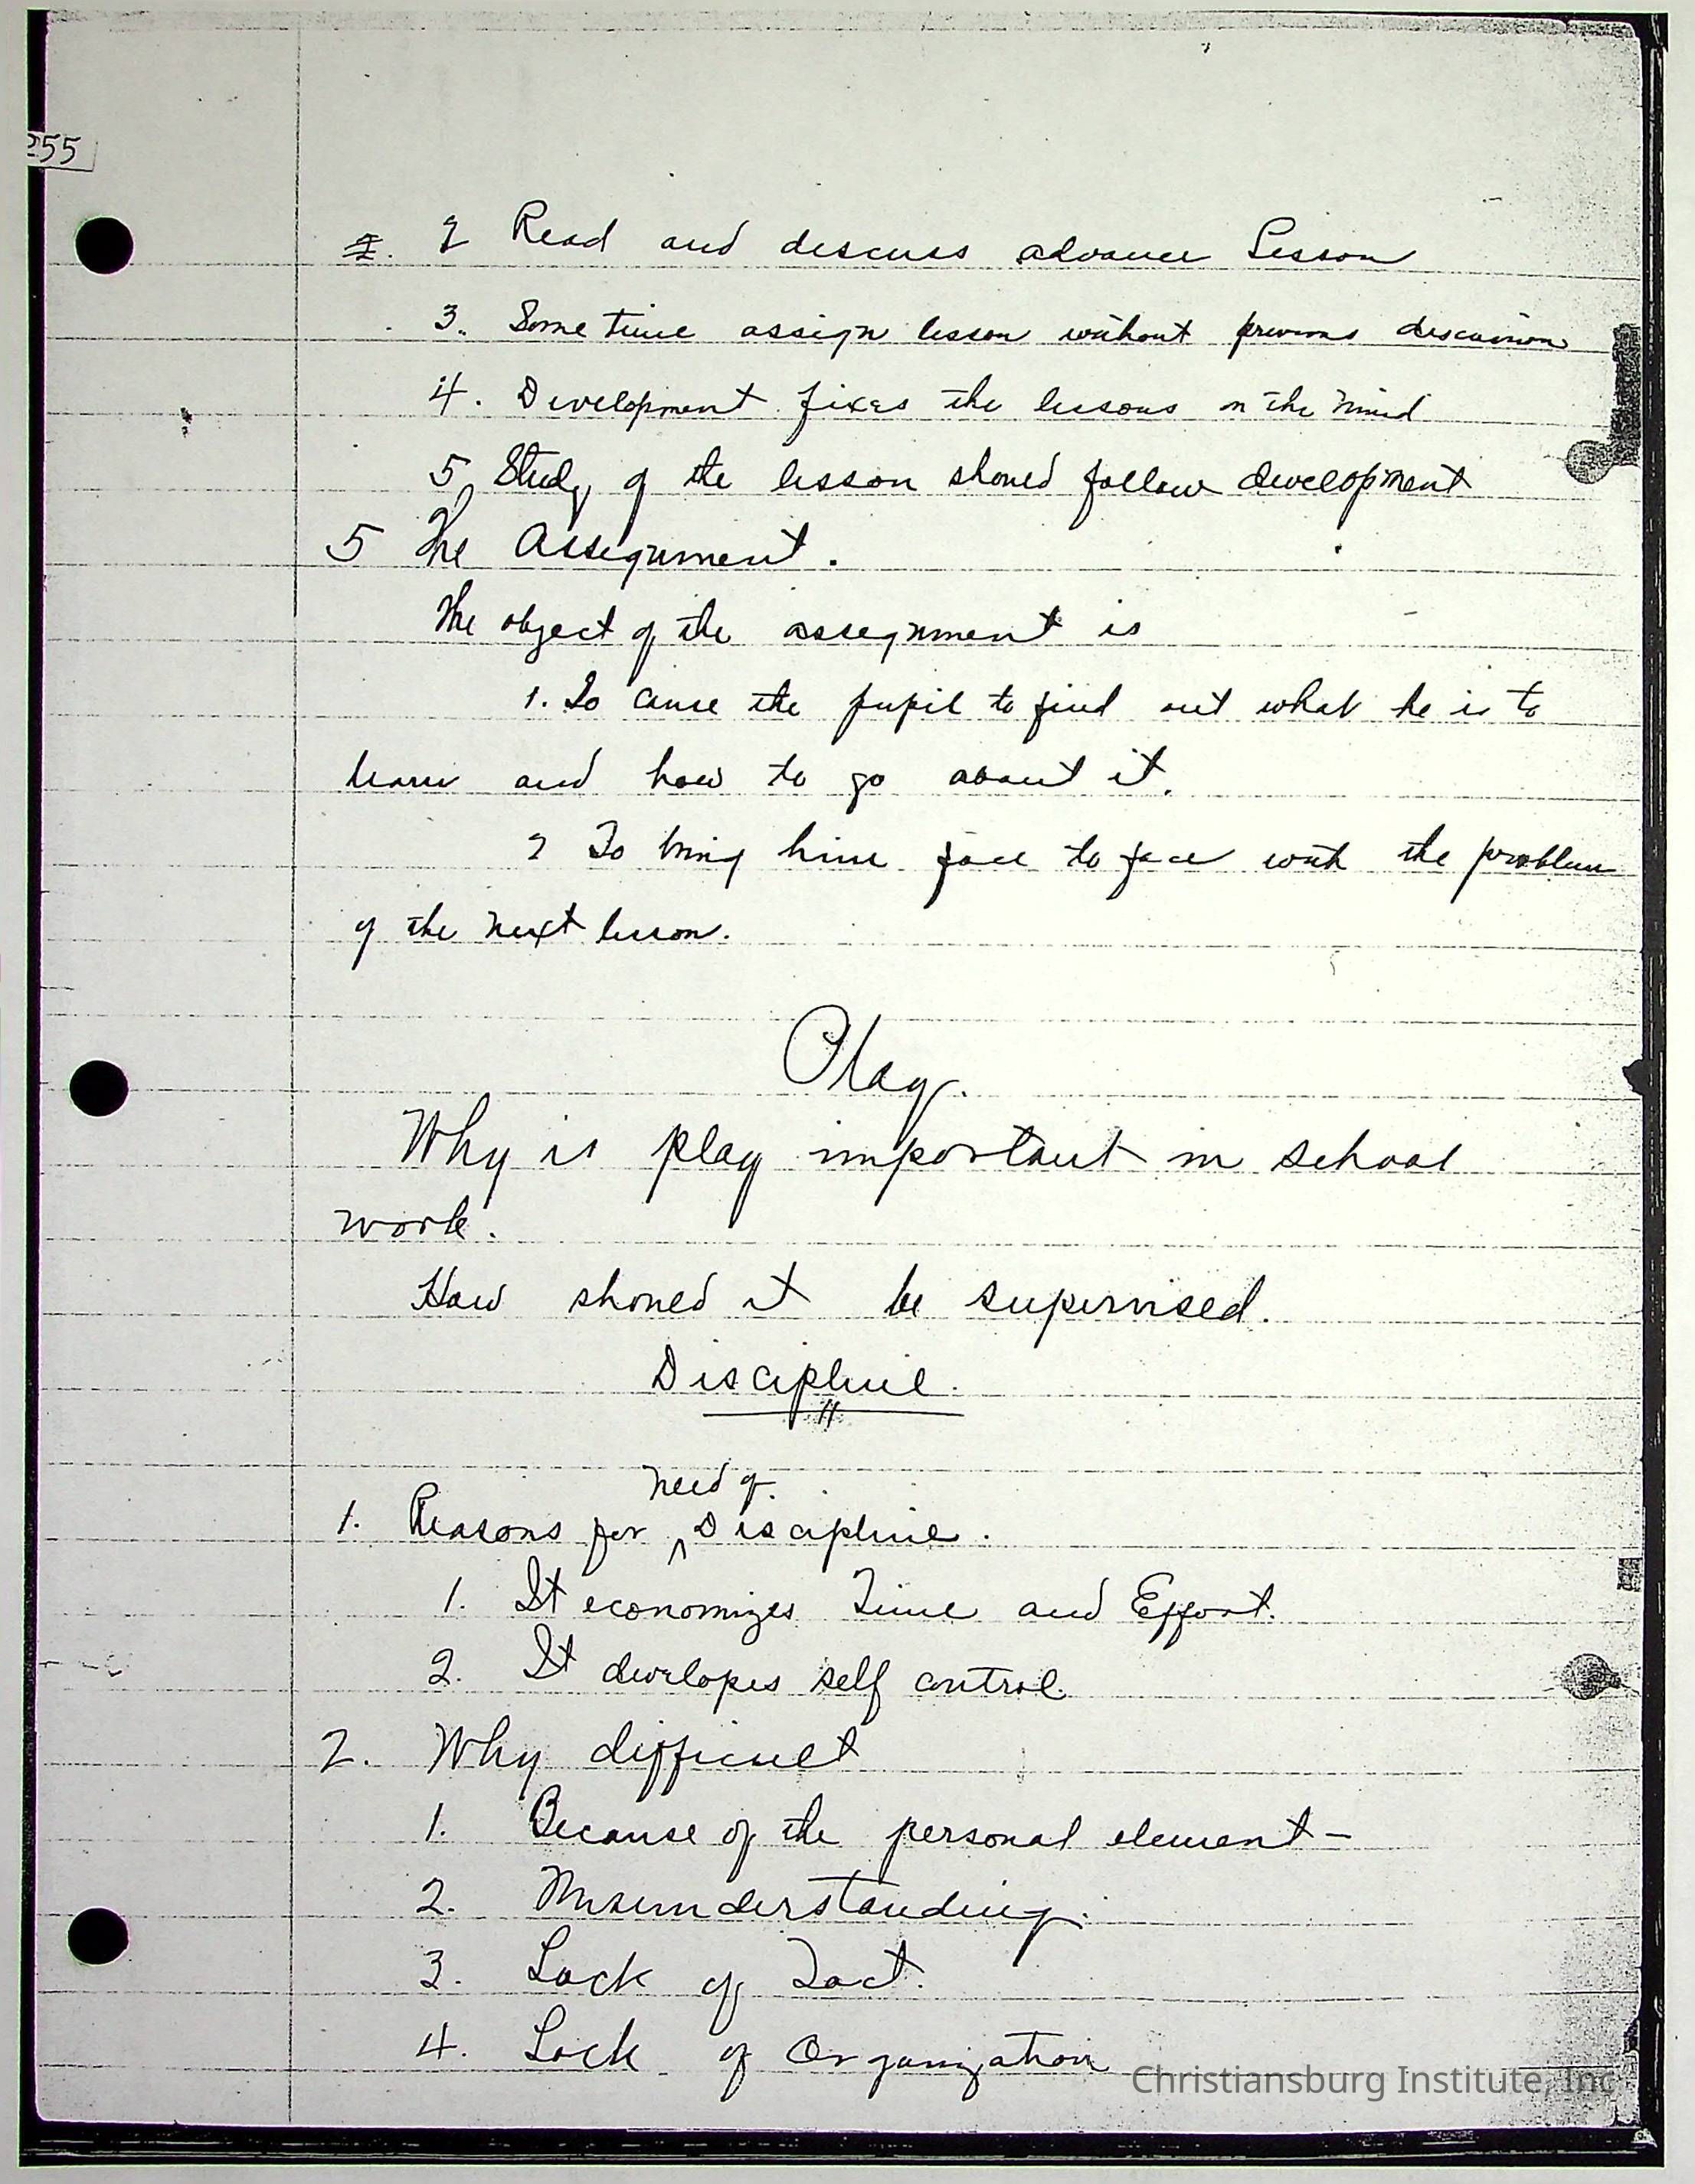 255
2 Read and discuss advance Lesson
3. Some time assign lesson without previous discussion
4. Development fixes the lessons in the mind
5, Study of the lesson should follow development
5 The Assignment.
The object of the assignment is
1. To cause the pupil to find out what he is to
learn and how to go about it.
2 To bring him face to face with the problem
of the next lesson.
Play.
Why is play important in school
work.
How should it be supervised.
Discipline.
need of
1. Reasons for ^ Discipline.
1. It economizes Time and Effort.
2. It developes self control.
2. Why difficult
1. Because of the personal element-
2. Misunderstanding.
3. Lack of Tact.
4. Lack of Organization
Christiansburg Institute, Inc